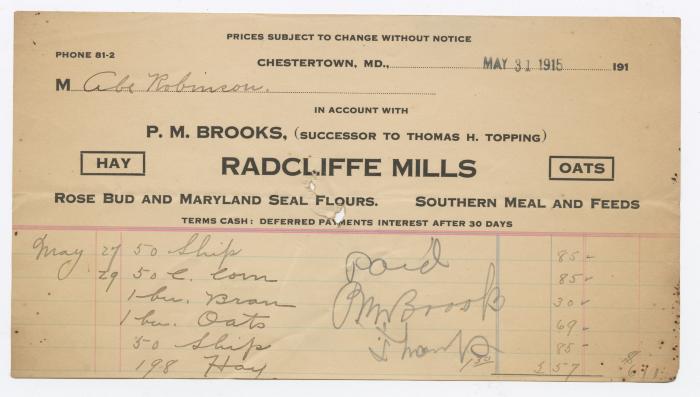 PRICES SUBJECT TO CHANGE WITHOUT NOTICE
PHONE 81-2
CHESTERTOWN, MD., MAY 31 1915 191
M Abe Robinson.
IN ACCOUNT WITH
P. M. BROOKS, (SUCCESSOR TO THOMAS H. TOPPING)
HAY RADCLIFFE MILLS OATS
ROSE BUD AND MARYLAND SEAL FLOURS. SOUTHERN MEAL AND FEEDS
TERMS CASH: DEFERRED PAYMENTS INTEREST AFTER 30 DAYS
May 27 50 Ship 85
29 50 C. Corn 85
1 bu. Bran 30
1 bu. Oats 69
50 Ship 85
198 Hay 57
Paid
P M Brook